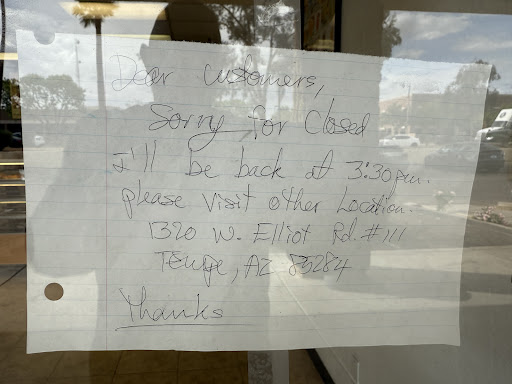 Dear customers,
Sorry for Closed
I'll be back at 3:30pm.
please visit other Location.
1320 W. Elliot Rd. #111
Tempe, AZ 85284
Thanks